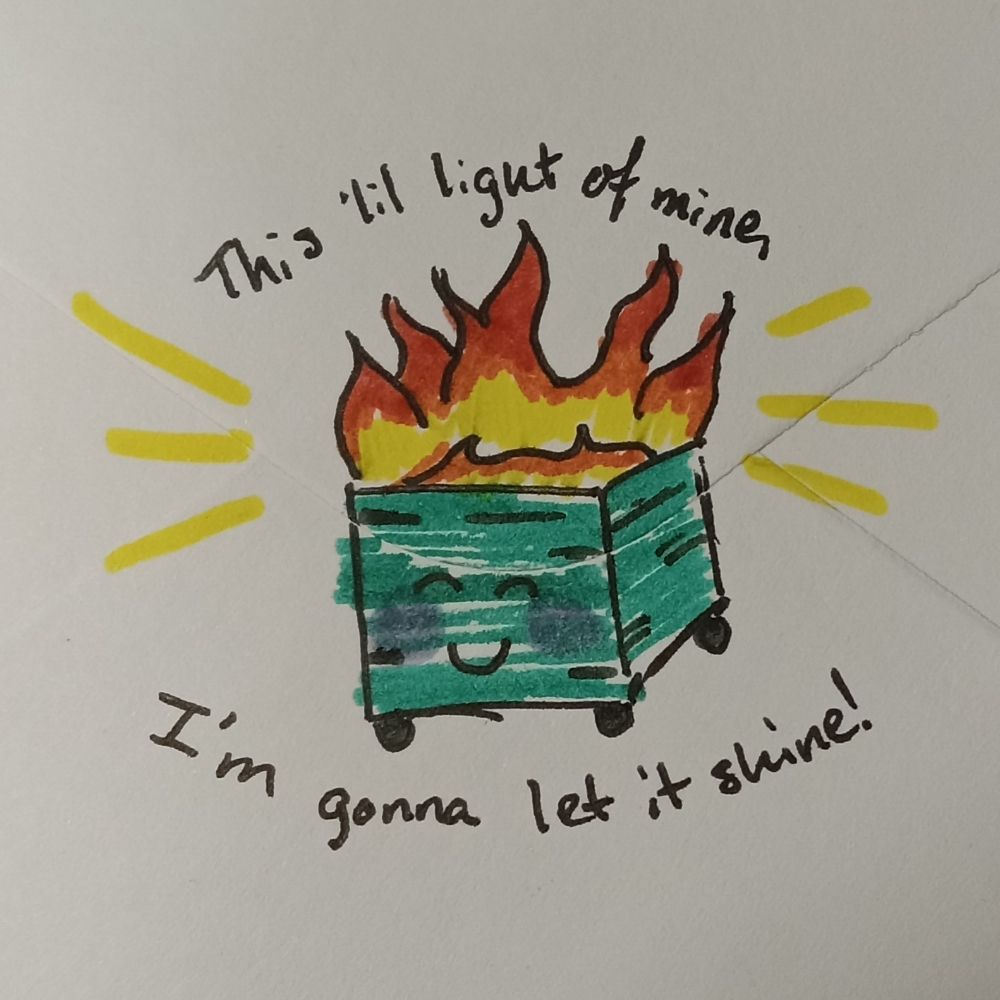 This 'lil light of mine,
I'm gonna let it shine!